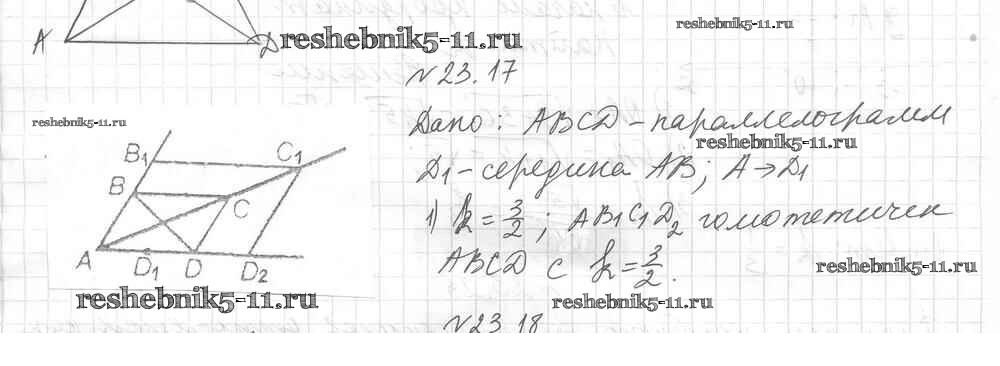 A D reshebnik5-11.ru
reshebnik5-11.ru
№ 23.17
reshebnik5-11.ru
Дано: ABCD - параллелограмм
reshebnik5-11.ru
D1 - середина AB; A → D1
1) k = 3/2; AB1C1D2 гомотетичен
ABCD с k = 3/2.
reshebnik5-11.ru
reshebnik5-11.ru
B1 C1
B C
A D1 D D2
reshebnik5-11.ru
№ 23.18